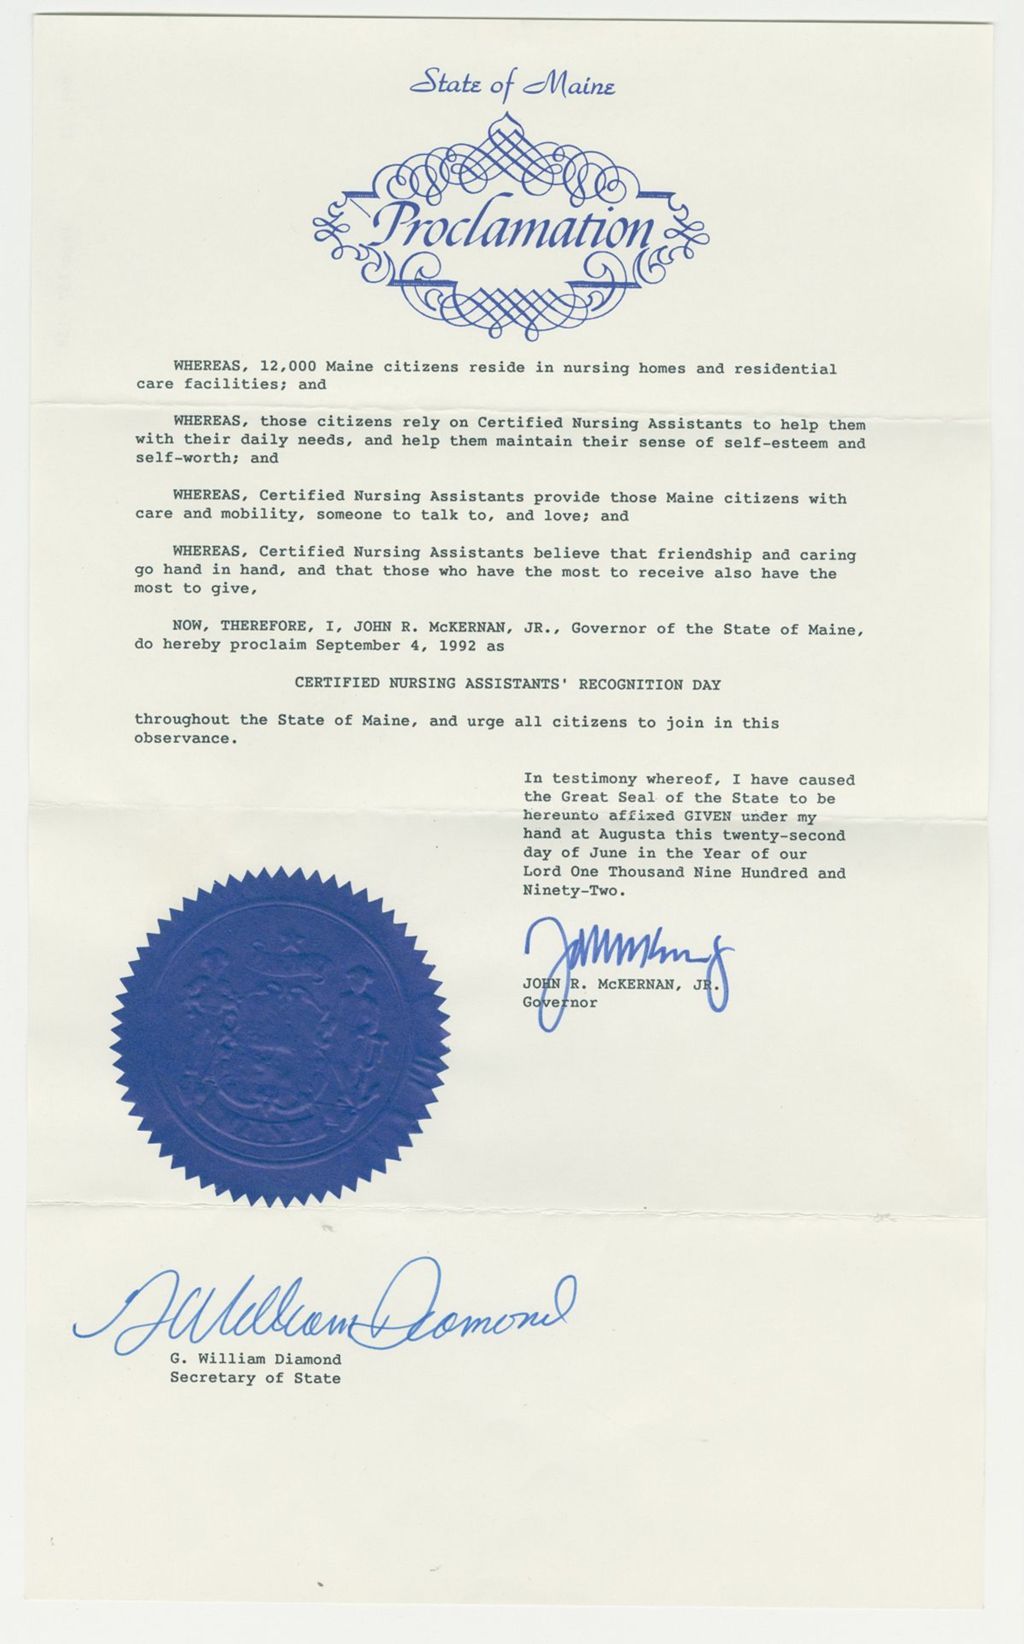 State of Maine
Proclamation
WHEREAS, 12,000 Maine citizens reside in nursing homes and residential
care facilities; and
WHEREAS, those citizens rely on Certified Nursing Assistants to help them
with their daily needs, and help them maintain their sense of self-esteem and
self-worth; and
WHEREAS, Certified Nursing Assistants provide those Maine citizens with
care and mobility, someone to talk to, and love; and
WHEREAS, Certified Nursing Assistants believe that friendship and caring
go hand in hand, and that those who have the most to receive also have the
most to give,
NOW, THEREFORE, I, JOHN R. McKERNAN, JR., Governor of the State of Maine,
do hereby proclaim September 4, 1992 as
CERTIFIED NURSING ASSISTANTS' RECOGNITION DAY
throughout the State of Maine, and urge all citizens to join in this
observance.
In testimony whereof, I have caused
the Great Seal of the State to be
hereunto affixed GIVEN under my
hand at Augusta this twenty-second
day of June in the Year of our
Lord One Thousand Nine Hundred and
Ninety-Two.
JOHN R. McKERNAN, JR.
Governor
G William Diamond
G. William Diamond
Secretary of State